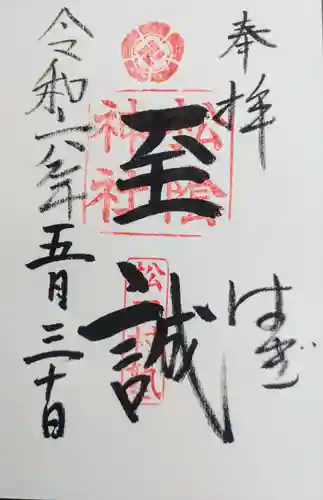 奉拝
はぎ
至誠
松陰
神社
松下村塾
令和六年五月三十日